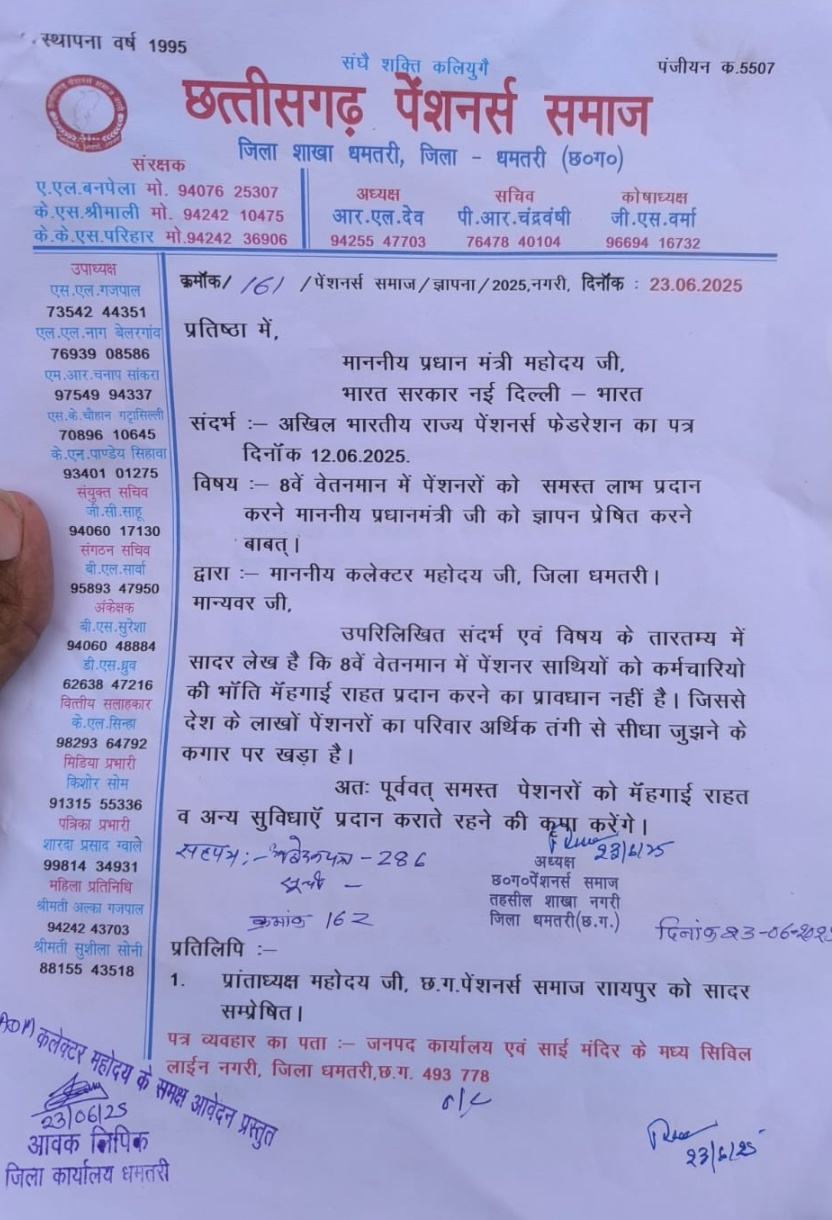 स्थापना वर्ष 1995
संघै शक्ति कलियुगै
पंजीयन क.5507
छत्तीसगढ़ पेंशनर्स समाज
जिला शाखा धमतरी, जिला – धमतरी (छ०ग०)
संरक्षक
ए.एल.बनपेला मो. 94076 25307
के.एस.श्रीमाली मो. 94242 10475
के.के.एस.परिहार मो.94242 36906
अध्यक्ष
आर.एल.देव
94255 47703
सचिव
पी.आर.चंद्रवंषी
76478 40104
कोषाध्यक्ष
जी.एस.वर्मा
96694 16732
उपाध्यक्ष
एस.एल.गजपाल
73542 44351
एल.एल.नाग बेलरगांव
76939 08586
एम.आर.चनाप सांकरा
97549 94337
एस.के.चौहान गट्टासिल्ली
70896 10645
के.एन.पाण्डेय सिहावा
93401 01275
संयुक्त सचिव
जी.सी.साहू
94060 17130
संगठन सचिव
बी.एल.सार्वा
95893 47950
अंकेक्षक
बी.एस.सुरेशा
94060 48884
डी.एस.ध्रुव
62638 47216
वित्तीय सलाहकार
के.एल.सिन्हा
98293 64792
मिडिया प्रभारी
किशोर सोम
91315 55336
पत्रिका प्रभारी
शारदा प्रसाद ग्वाले
99814 34931
महिला प्रतिनिधि
श्रीमती अल्का गजपाल
94242 43703
श्रीमती सुशीला सोनी
88155 43518
क्रमॉक/ 161 /पेंशनर्स समाज/ज्ञापना/2025,नगरी, दिनॉक : 23.06.2025
प्रतिष्ठा में,
माननीय प्रधान मंत्री महोदय जी,
भारत सरकार नई दिल्ली – भारत
संदर्भ :– अखिल भारतीय राज्य पेंशनर्स फेडरेशन का पत्र
दिनॉक 12.06.2025.
विषय :– 8वें वेतनमान में पेंशनरों को समस्त लाभ प्रदान
करने माननीय प्रधानमंत्री जी को ज्ञापन प्रेषित करने
बाबत्।
द्वारा :– माननीय कलेक्टर महोदय जी, जिला धमतरी।
मान्यवर जी,
उपरिलिखित संदर्भ एवं विषय के तारतम्य में
सादर लेख है कि 8वें वेतनमान में पेंशनर साथियों को कर्मचारियो
की भॉति मॅहगाई राहत प्रदान करने का प्रावधान नहीं है। जिससे
देश के लाखों पेंशनरों का परिवार अर्थिक तंगी से सीधा जुझने के
कगार पर खड़ा है।
अतः पूर्ववत् समस्त पेंशनरों को मॅहगाई राहत
व अन्य सुविधाऍ प्रदान कराते रहने की कृपा करेंगे।
सहपत्र:– आवेदनपत्र – 286
सूची –
23/6/25
अध्यक्ष
छ०ग०पेंशनर्स समाज
तहसील शाखा नगरी
जिला धमतरी(छ.ग.)
क्रमांक 162
दिनांक 23-06-2025
प्रतिलिपि :–
1. प्रांताध्यक्ष महोदय जी, छ.ग.पेंशनर्स समाज राायपुर को सादर
सम्प्रेशित।
पत्र व्यवहार का पता :– जनपद कार्यालय एवं साई मंदिर के मध्य सिविल
लाईन नगरी, जिला धमतरी,छ.ग. 493 778
कलेक्टर महोदय के समक्ष आवेदन प्रस्तुत
23/06/25
आवक लिपिक
जिला कार्यालय धमतरी
o/c
23/6/25